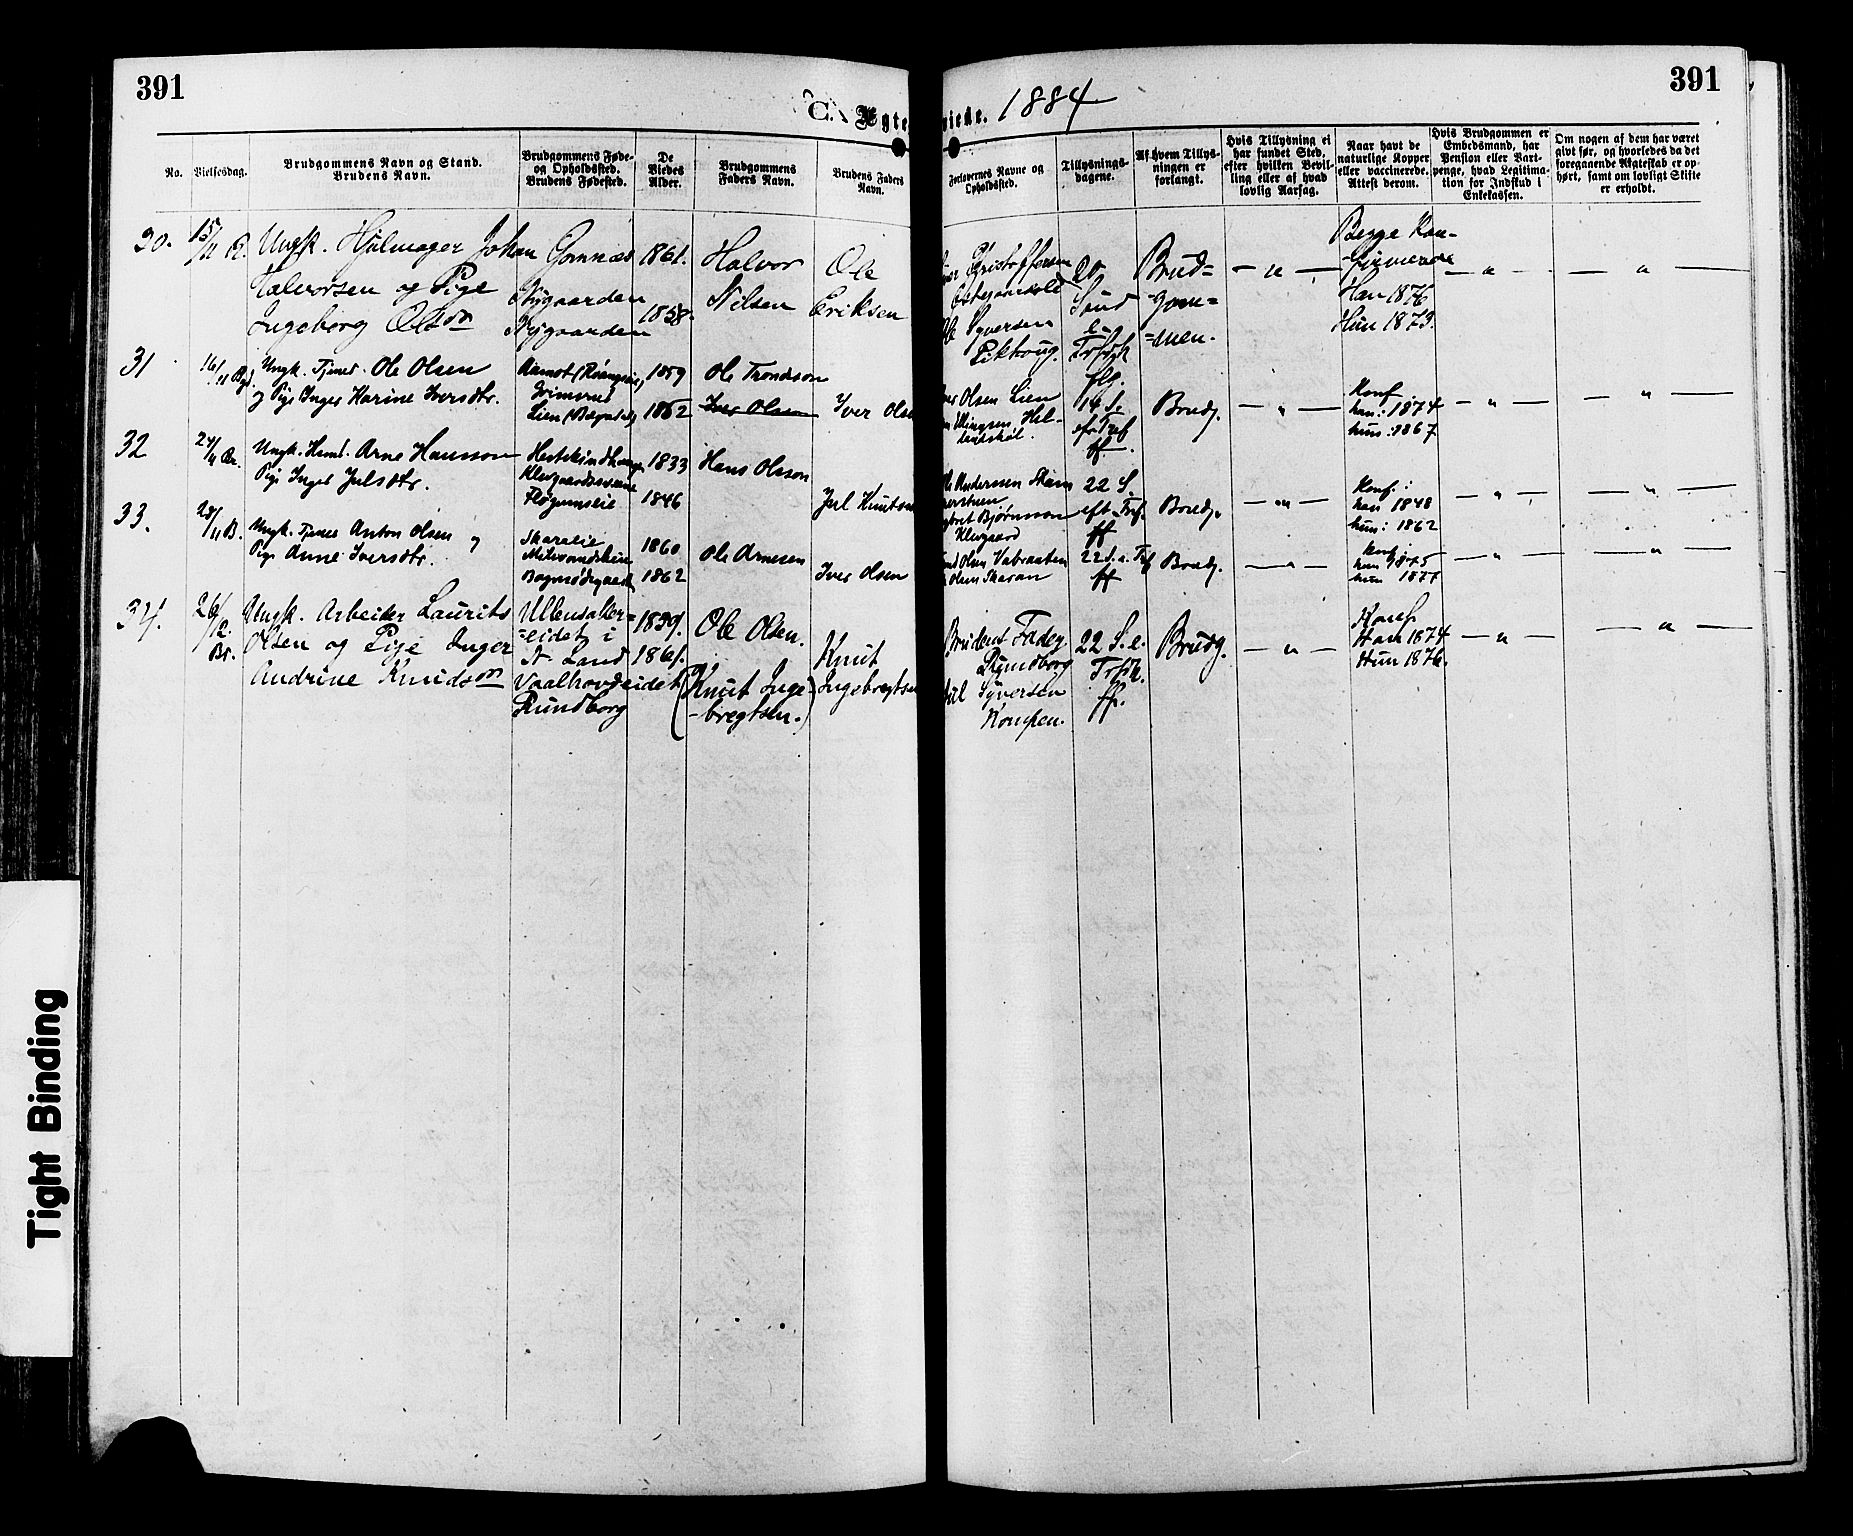 391
391
C. Ægte
viede. 1884
No.
Vielsesdag.
Brudgommens Navn og Stand.
Brudens Navn.
Brudgommens Føde-
og Opholdssted.
Brudens Fødested.
De
Viedes
Alder.
Brudgommens
Faders Navn.
Brudens Faders
Navn.
Forlovernes Navne og
Opholdssted.
Tillysnings-
dagene.
Af hvem Tillys-
ningen er
forlangt.
Hvis Tillysning ei
har fundet Sted,
efter hvilken Bevil-
ling eller af hvad
lovlig Aarsag.
Naar havt de
naturlige Kopper
eller vaccinerede.
Attest derom.
Hvis Brudgommen er
Embedsmand, har
Pension eller Vart-
penge, hvad Legitima-
tion for Indskud i
Enkekassen.
Om nogen af dem har været
givt før, og hvorledes da det
foregaaende Ægteskab er op-
hørt, samt om lovligt Skifte
er erholdt.
30.
15/11 R.
Ungk. Hjulmager Johan
Halvorsen og Pige
Ingeborg Olsdn
Gomnæs
Nygaarden
Nygaarden
1861.
1858.
Halvor
Nilsen
Ole
Eriksen
Christoffersen
Syversen
20
Sønd
e.
Trfdgh
Brud=
gom=
=men.
— " —
Begge Kon-
firmerede
Han 1876
Hun 1873.
— " —
— " —
31
16/11
Ungk. Tjener Ole Olsen
og Pige Inger Karine Iversdtr.
Lien
1859
1862
Ole Trondsson
Iver Olsen
Iver Olse
Olsen Lien
14 S.
ff.
Brudg.
— " —
Konf.
han: 1874
hun: 1867
— " —
— " —
32
Ungk. Husm. Arne Hansson
Pige Inger Julsdtr.
1833
1846
Hans Olsson
Jul Knutsen
Andersen
Bjørnsson
Klevgaard
22 S.
eft. Trf.
ff
Brudg.
— " —
Konf:
han 1848
hun: 1862
— " —
— " —
33.
Ungk. Tjener Anton Olsen og
Pige Anne Iversdtr.
Skaraeie
1860
1862
Ole Arnesen
Iver Olsen
Olsen
Olsen Skaran
22 S. e. Trf
ff
Brudg.
— " —
Konf.
han 1875
hun 1877
— " —
— " —
34.
26/12.
Br.
Ungk. Arbeider Laurits
Olsen og Pige Inger
Andrine Knudsdn
Ullensaker=
=eidet i
N. Land
Vaalhovdseidet
Rundborg
1859.
1861.
Ole Olsen.
(Knut Inge-
-bregtsen.)
Knut
Ingebregtsen
Brudens Fader
Rundborg
Syversen
Kompen.
22 S. e.
Trfdh.
ff.
Brudg.
— " —
Konf
Han 1874
Hun 1876.
— " —
— " —
Tight Binding